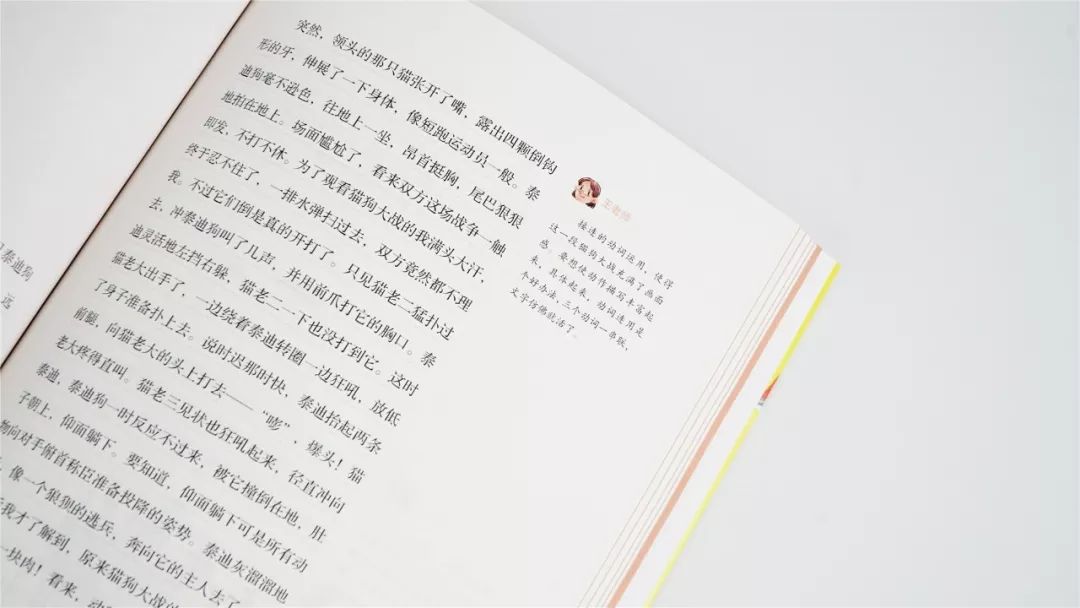 突然，领头的那只猫张开了嘴，露出四颗倒钩
形的牙，伸展了一下身体，像短跑运动员一般。泰
迪狗毫不逊色，往地上一坐，昂首挺胸，尾巴狠狠
地拍在地上。场面尴尬了，看来双方这场战争一触
即发，不打不休。为了观看猫狗大战的我满头大汗，
终于忍不住了，一排水弹扫过去，双方竟然都不理
我。不过它们倒是真的开打了。只见猫老二猛扑过
去，冲泰迪狗叫了几声，并用前爪打它的胸口。泰
迪灵活地左挡右躲，猫老二一下也没打到它。这时
猫老大出手了，一边绕着泰迪转圈一边狂吼，放低
了身子准备扑上去。说时迟那时快，泰迪抬起两条
前腿，向猫老大的头上打去——“嘭”，爆头！猫
老大疼得直叫。猫老三见状也狂吼起来，径直冲向
泰迪，泰迪狗一时反应不过来，被它撞倒在地，肚
子朝上，仰面躺下。要知道，仰面躺下可是所有动
物向对手俯首称臣准备投降的姿势。泰迪灰溜溜地
，像一个狼狈的逃兵，奔向它的主人去了
我才了解到，原来猫狗大战的
一块肉！看来，动
王老师
接连的动词运用，使得
这一段猫狗大战充满了画面
感。要想使动作描写丰富起
来，具体起来，动词连用是
个好办法，三个动词一串联，
文字仿佛就活了。
泰迪狗
远